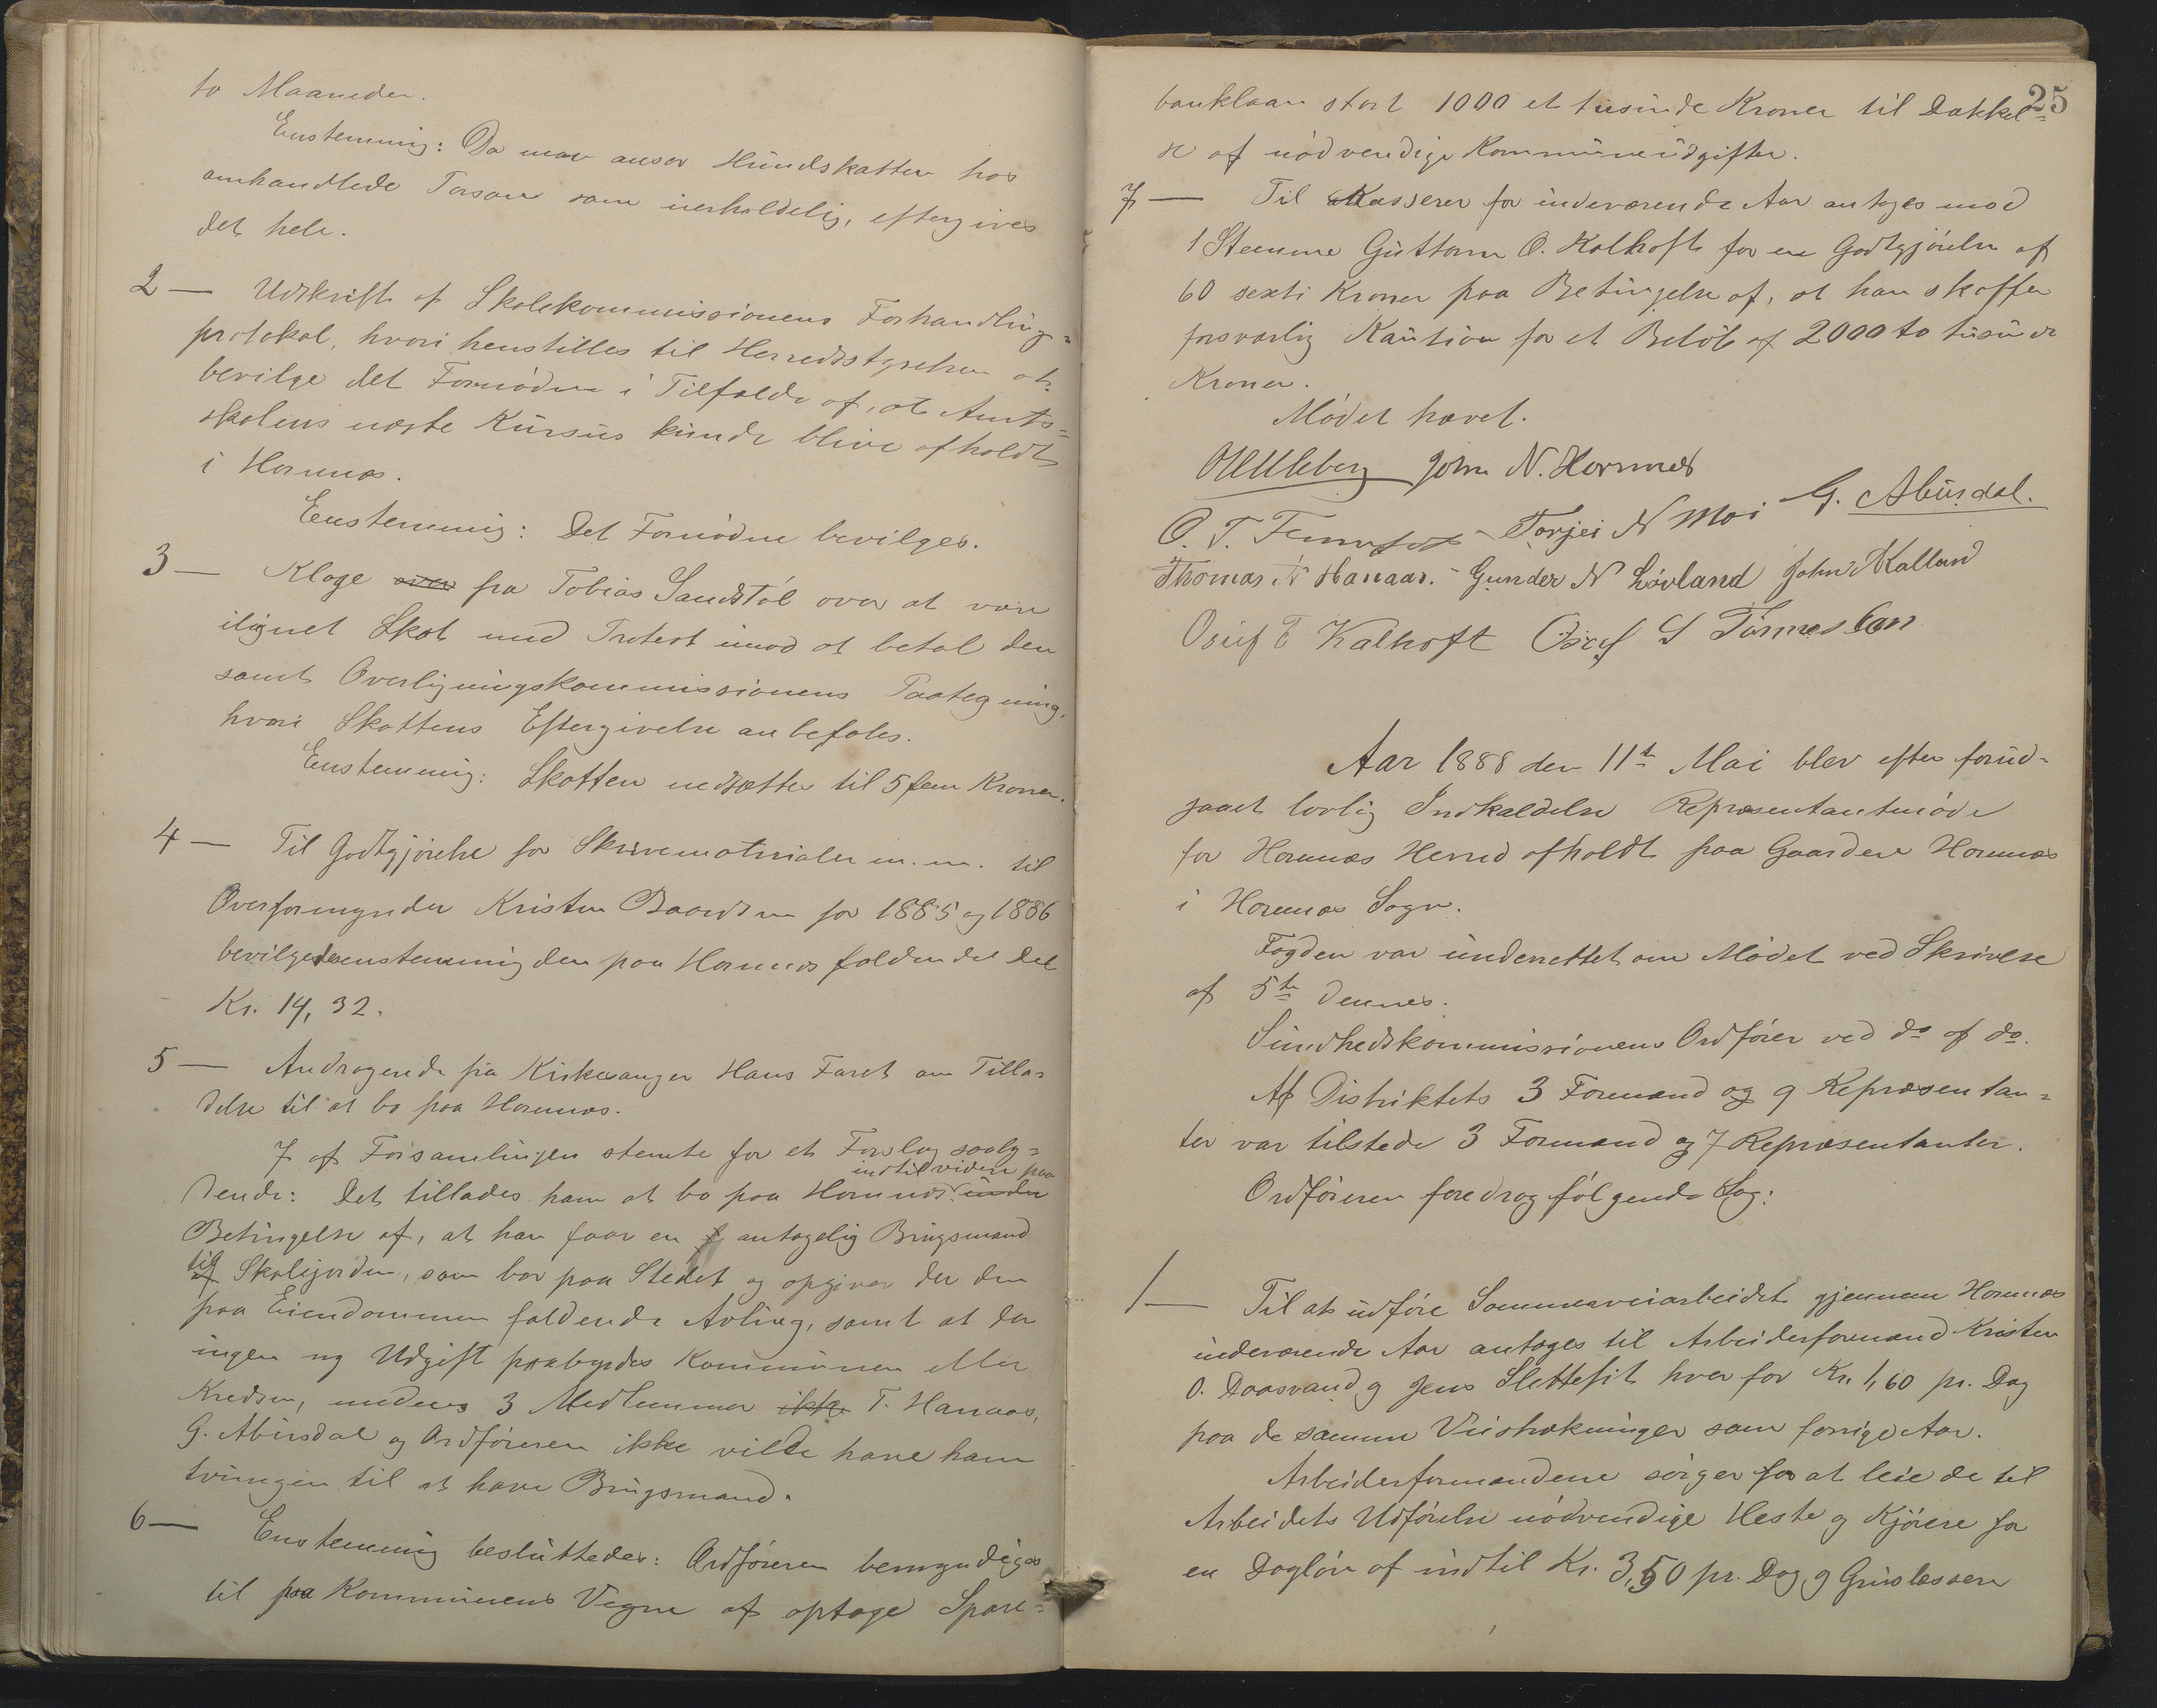 to Maaneder.
Enstemmig: Da man anser Hundskatten hos
omhandlede Person som uerholdelig, eftergives
det hele.
2 — Udskrift af Skolekommissionens Forhandlings=
protokol, hvori henstilles til Herredsstyrelsen at
bevilge det Fornødne i Tilfælde af, at Amts=
skolens næste Kursus kunde blive afholdt
i Hornnes.
Enstemmig: Det Fornødne bevilges.
3 — Klage over fra Tobias Sandstøl over at være
ilignet Skat med Protest imod at betale den
samt Overligningskommissionens Paategning,
hvori Skattens Eftergivelse anbefales.
Enstemmig: Skatten nedsættes til 5 fem Kroner.
4 — Til Godtgjørelse for Skrivematerialer m.m. til
Overformynder Kristen Baardsen for 1885 og 1886
bevilgedes enstemmig den paa Hornnes faldende Del
Kr. 14,32.
5 — Andragende fra Kirkesanger Hans Faret om Tilla=
delse til at bo paa Hornnes.
7 af Forsamlingen stemte for et Forslag saaly=
indtil videre paa
dende: Det tillades ham at bo paa Hornnes under
Betingelse af, at han faar en f antagelig Brugsmand
til
af Skolejorden, som bor paa Stedet og opgiver der den
paa Eiendommen faldende Avling, samt at der
ingen ny Udgift paabyrdes Kommunen eller
Kredsen, medens 3 Medlemmer ikke T. Hanaas,
G. Abusdal og Ordføreren ikke vilde have ham
tvungen til at have Brugsmand.
6 — Enstemmig besluttedes: Ordføreren bemyndiges
til paa Kommunens Vegne at optage Spare=
25
banklaan stort 1000 et tusinde Kroner til Dækkel=
se af nødvendige Kommuneudgifter.
7 — Til Kasserer for indeværende Aar antages mod
1 Stemme Guttorm O. Kalhoft for en Godtgjørelse af
60 sexti Kroner paa Betingelse af, at han skaffer
forsvarlig Kaution for et Beløb af 2000 to tusinde
Kroner.
Mødet hævet.
Uleberg John N. Hornnes
O. T. Torjei N Moi G. Abusdal.
Thomas N Hanaas. - Gunder N Løvland John Kalland
Osuf T Kalhoft Osuf S
Aar 1888 den 11te Mai blev efter forud=
gaaet lovlig Indkaldelse Repræsentantmøde
for Hornnes Herred afholdt paa Gaarden Hornnes
i Hornnes Sogn.
Fogden var underrettet om Mødet ved Skrivelse
af 5te dennes.
Sundhedskommissionens Ordfører ved do af do.
Af Distriktets 3 Formænd og 9 Repræsentan=
ter var tilstede 3 Formænd og 7 Repræsentanter.
Ordføreren foredrog følgende Sag:
1 — Til at udføre Sommerveiarbeidet gjennem Hornnes
indeværende Aar antages til Arbeiderformænd Kristen
O. Daasvand og Jens Slettefit hver for Kr. 1,60 pr. Dag
paa de samme Veistrækninger som forrige Aar.
Arbeiderformændene sørger for at leie de til
Arbeidets Udførelse nødvendige Heste og Kjørere for
en Dagløn af indtil Kr. 3,50 pr. Dag, og Gruslæssere